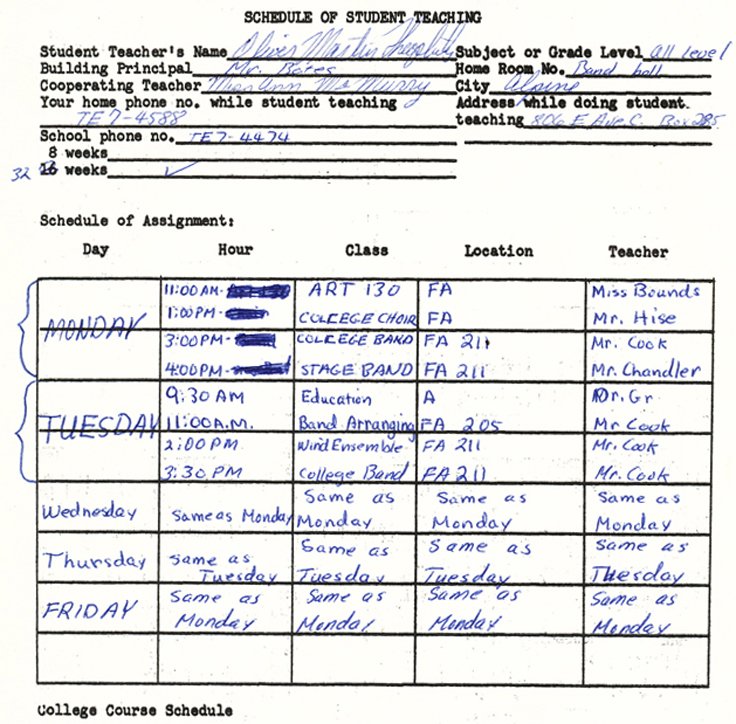 SCHEDULE OF STUDENT TEACHING
Student Teacher's Name Oliver Martin Subject or Grade Level all level
Building Principal Mr. Bates Home Room No. Band hall
Cooperating Teacher Miss Ann McMurry City Alpine
Your home phone no. while student teaching Address while doing student
TE7-4588 teaching 806 E Ave C. Box 285
School phone no. TE7-4474
8 weeks
32 16 weeks ✓
Schedule of Assignment:
Day Hour Class Location Teacher
MONDAY 11:00 AM- ART 130 FA Miss Bounds
1:00 PM- COLLEGE CHOIR FA Mr. Hise
3:00 PM- COLLEGE BAND FA 211 Mr. Cook
4:00 PM- STAGE BAND FA 211 Mr. Chandler
TUESDAY 9:30 AM Education A Dr. Gr
11:00 A.M. Band Arranging FA 205 Mr Cook
2:00 PM Wind Ensemble FA 211 Mr. Cook
3:30 PM College Band FA 211 Mr. Cook
Wednesday Same as Monday Same as Monday Same as Monday Same as Monday
Thursday Same as Tuesday Same as Tuesday Same as Tuesday Same as Tuesday
FRIDAY Same as Monday Same as Monday Same as Monday Same as Monday
College Course Schedule